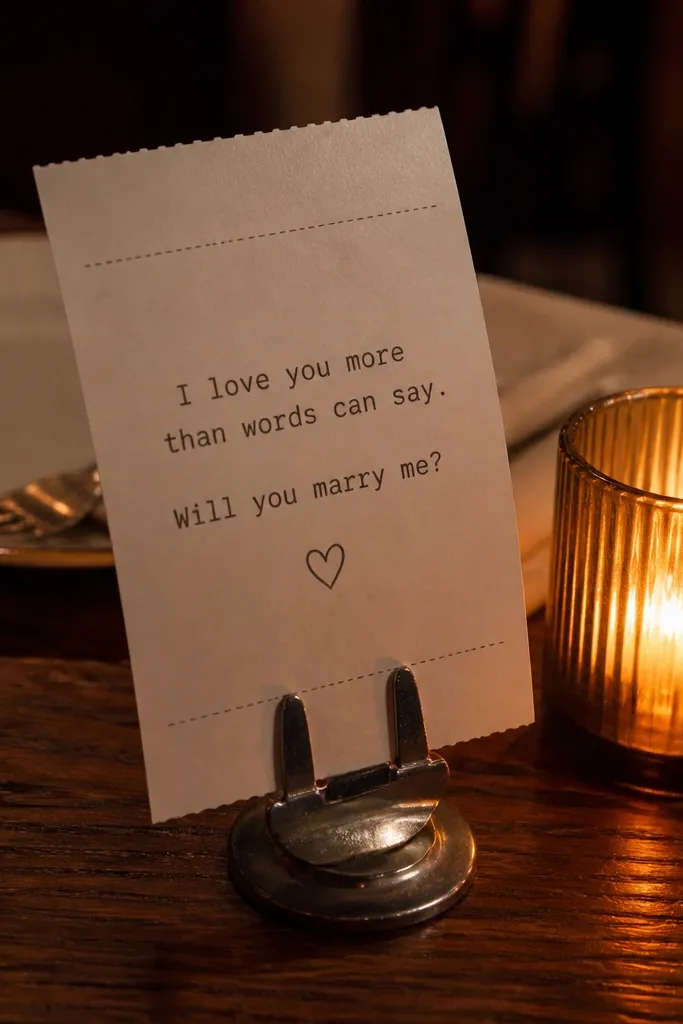 I love you more
than words can say.
Will you marry me?